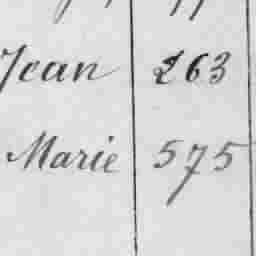 Jean 263
Marie 575